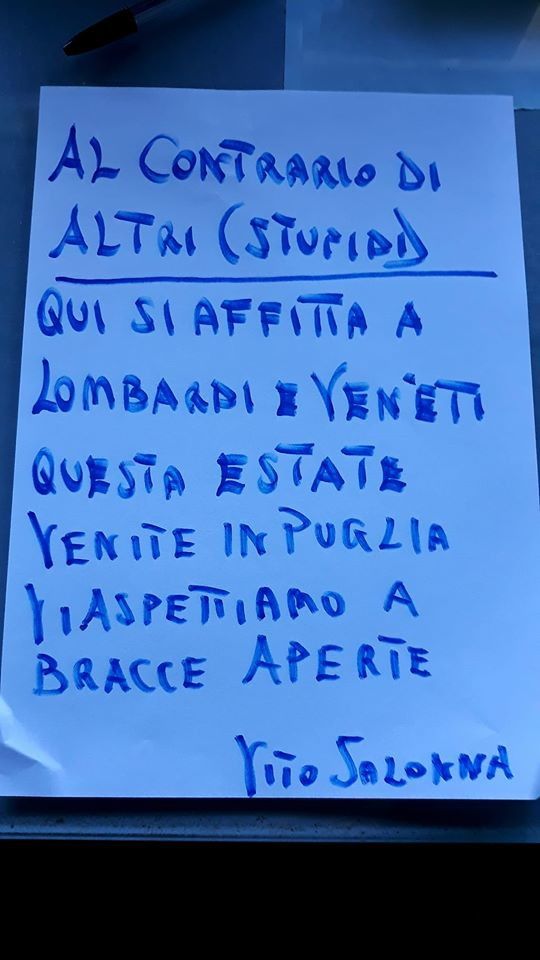 AL CONTRARIO DI
ALTRI (STUPIDI)
QUI SI AFFITTA A
LOMBARDI E VENETI
QUESTA ESTATE
VENITE IN PUGLIA
VI ASPETTIAMO A
BRACCE APERTE
VITO SALONNA